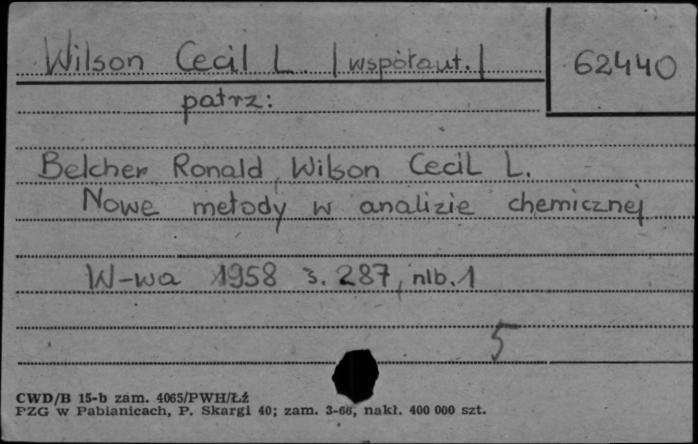 Wilson Cecil L. /współaut./ 62440
patrz:
Belcher Ronald, Wilson Cecil L.
Nowe metody w analizie chemicznej
W-wa 1958 s. 287, nlb. 1
5
CWD/B 15-b zam. 4065/PWH/Łź
PZG w Pabianicach, P. Skargi 40; zam. 3-66, nakł. 400 000 szt.